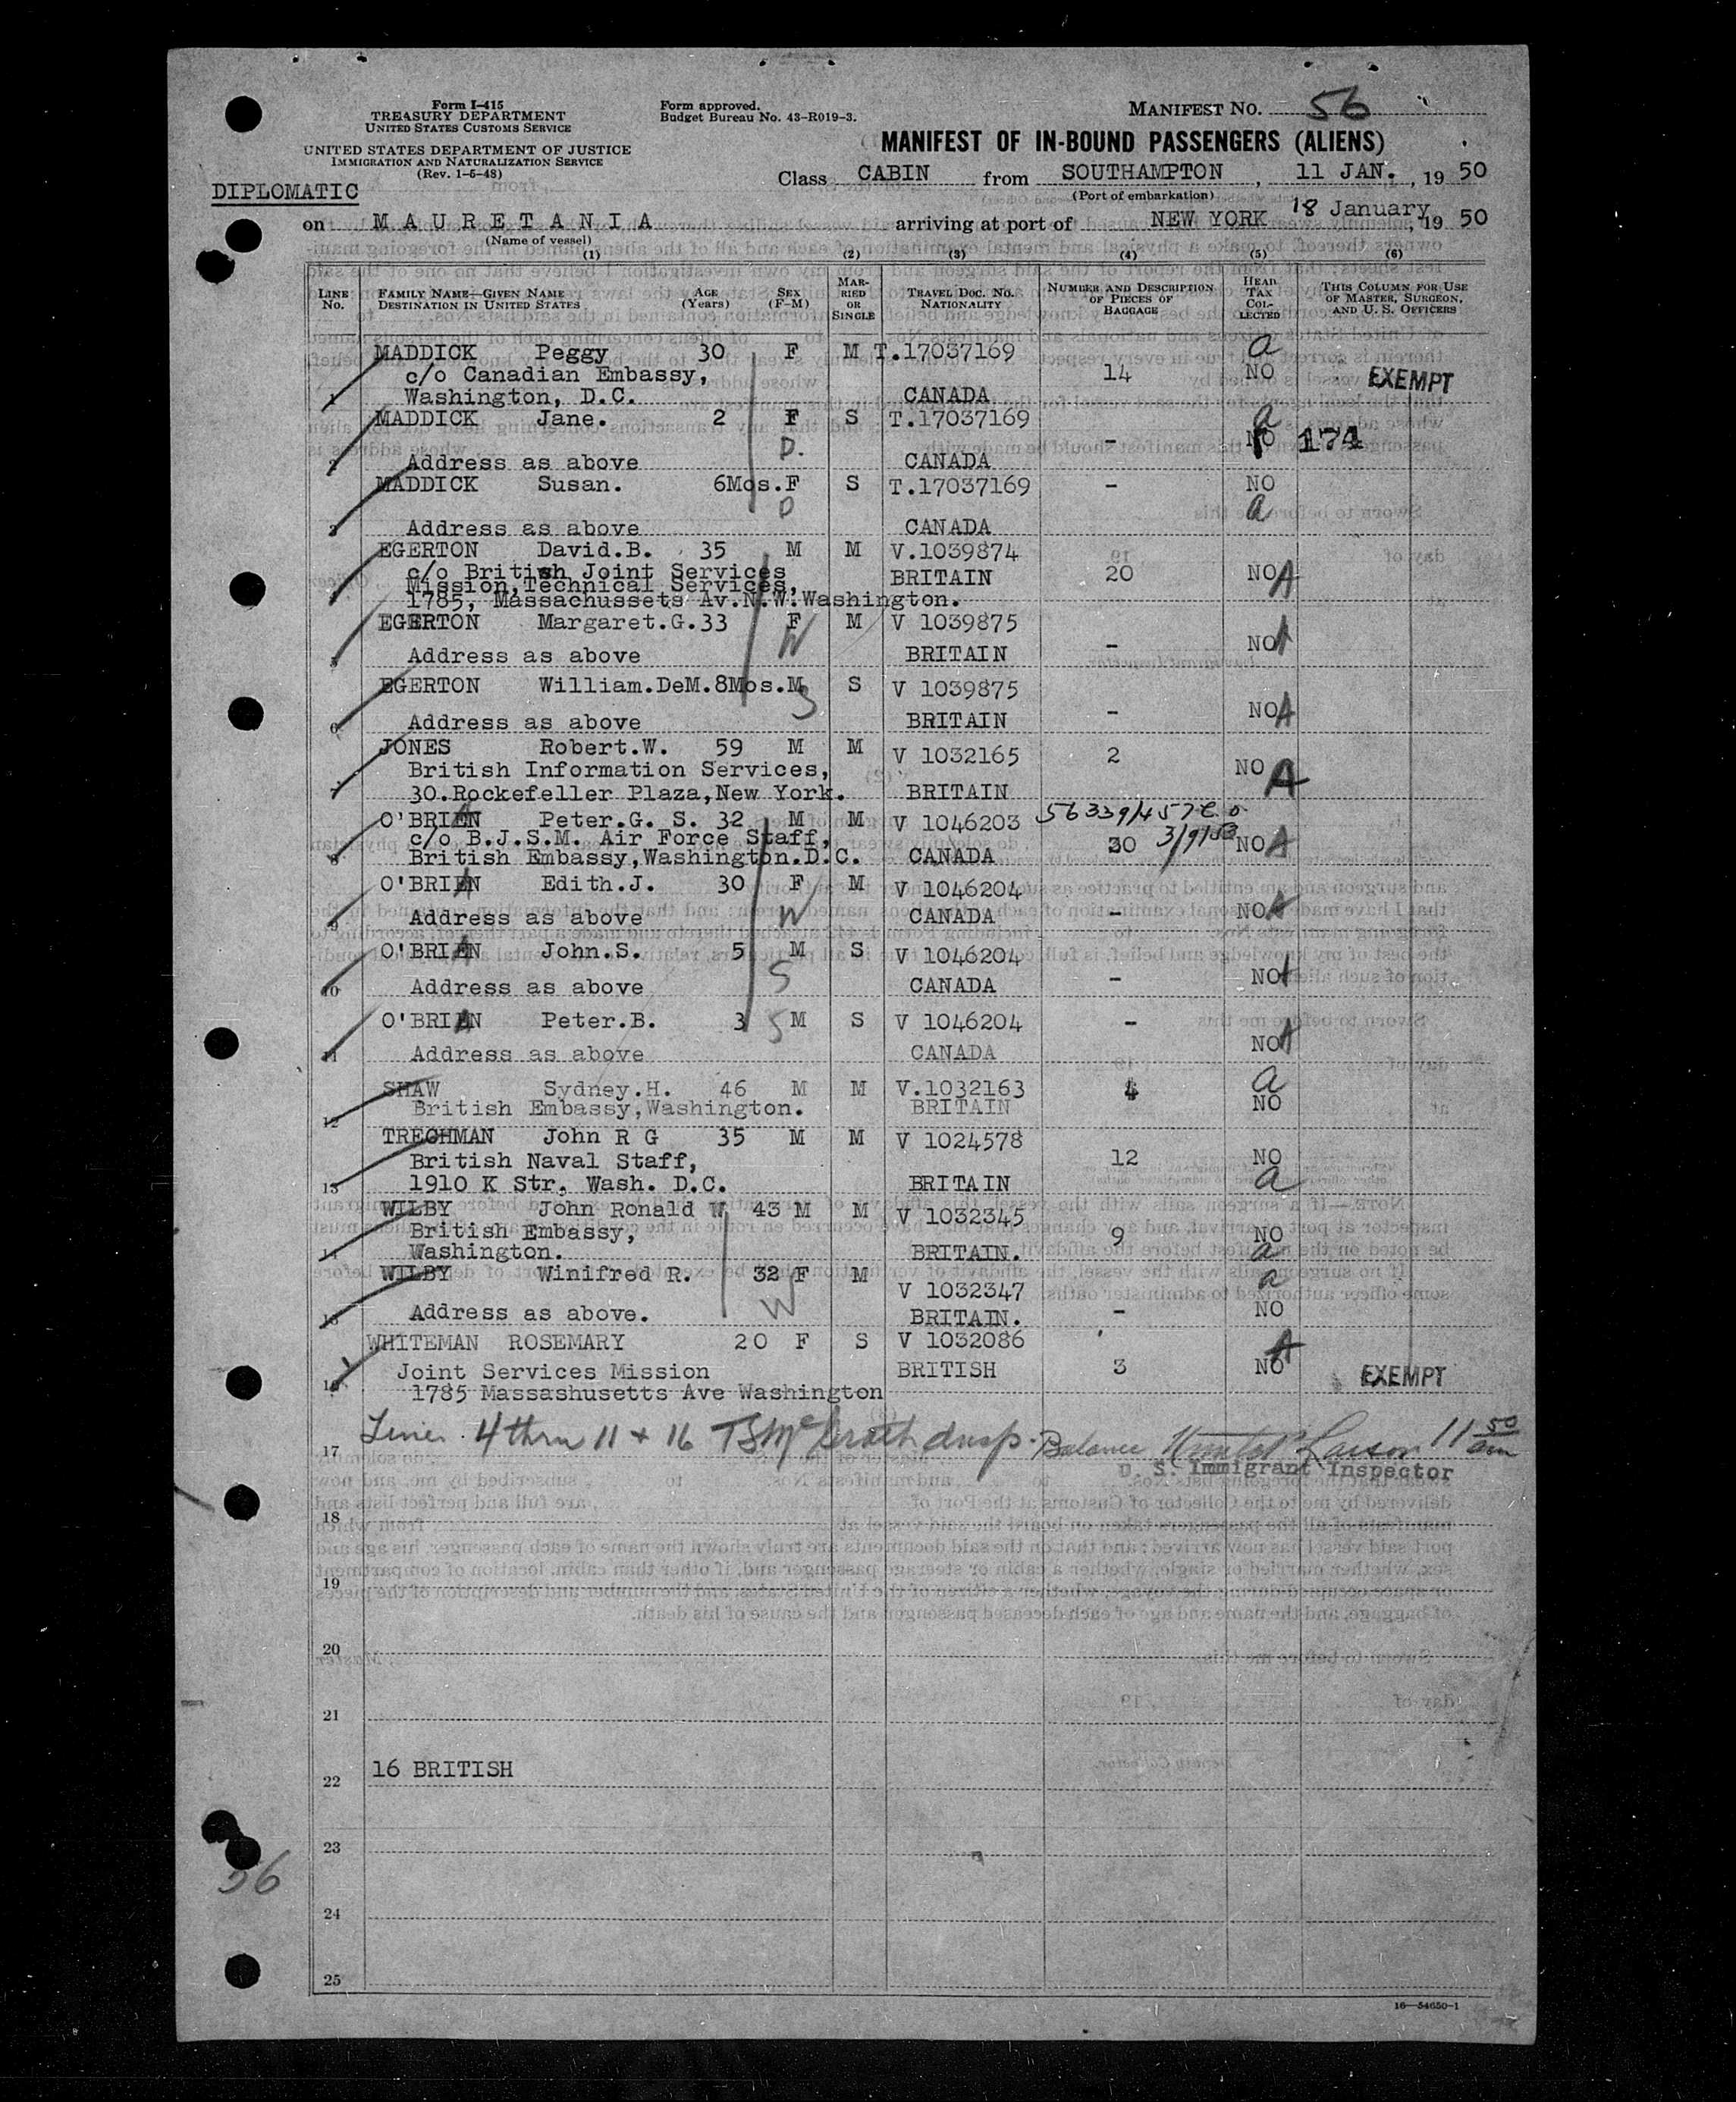 Form I-415
TREASURY DEPARTMENT
UNITED STATES CUSTOMS SERVICE
UNITED STATES DEPARTMENT OF JUSTICE
IMMIGRATION AND NATURALIZATION SERVICE
(Rev. 1-5-48)
Form approved.
Budget Bureau No. 43-R019-3.
MANIFEST NO. 56
MANIFEST OF IN-BOUND PASSENGERS (ALIENS)
DIPLOMATIC
Class CABIN from SOUTHAMPTON, 11 JAN., 19 50
(Port of embarkation)
on MAURETANIA arriving at port of NEW YORK 18 January, 19 50
(Name of vessel)
(1) (2) (3) (4) (5) (6)
LINE NO. FAMILY NAME—GIVEN NAME DESTINATION IN UNITED STATES AGE (Years) SEX (F-M) MARRIED OR SINGLE TRAVEL DOC. NO. NATIONALITY NUMBER AND DESCRIPTION OF PIECES OF BAGGAGE HEAD TAX COLLECTED THIS COLUMN FOR USE OF MASTER, SURGEON, AND U. S. OFFICERS
MADDICK Peggy 30 F M T.17037169 a
c/o Canadian Embassy, 14 NO EXEMPT
1 Washington, D.C. CANADA
MADDICK Jane. 2 F S T.17037169 a
D. - NO 174
2 Address as above CANADA
MADDICK Susan. 6Mos. F S T.17037169 - NO
D a
3 Address as above CANADA
EGERTON David.B. 35 M M V.1039874
c/o British Joint Services BRITAIN 20 NO A
Mission,Technical Services,
4 1785, Massachussets Av.N.W.Washington.
EGERTON Margaret.G. 33 F M V 1039875
W - NO A
5 Address as above BRITAIN
EGERTON William.DeM. 8Mos. M S V 1039875
S - NO A
6 Address as above BRITAIN
JONES Robert.W. 59 M M V 1032165 2
British Information Services, NO A
7 30.Rockefeller Plaza,New York. BRITAIN
O'BRIAN Peter.G. S. 32 M M V 1046203
c/o B.J.S.M. Air Force Staff, 30 3/9/53 NO A
8 British Embassy,Washington.D.C. CANADA
O'BRIAN Edith.J. 30 F M V 1046204
9 Address as above W CANADA - NO A
O'BRIAN John.S. 5 M S V 1046204
10 Address as above S CANADA - NO A
O'BRIAN Peter.B. 3 S M S V 1046204 -
NO A
11 Address as above CANADA
SHAW Sydney.H. 46 M M V.1032163 4 a
12 British Embassy,Washington. BRITAIN NO
TRECHMAN John R G 35 M M V 1024578
British Naval Staff, 12 NO
13 1910 K Str, Wash. D.C. BRITAIN a
WILBY John Ronald W 43 M M V 1032345
British Embassy, 9 NO
14 Washington. BRITAIN. a
WILBY Winifred R. 32 F M V 1032347 a
15 Address as above. W BRITAIN. - NO
WHITEMAN ROSEMARY 20 F S V 1032086 A
Joint Services Mission BRITISH 3 NO EXEMPT
16 1785 Massashusetts Ave Washington
17 Lines 4 thru 11 + 16 insp. Balance Larson 11 50 am
U. S. Immigrant Inspector
18
19
20
21
22 16 BRITISH
23
56
24
25
16—54650-1